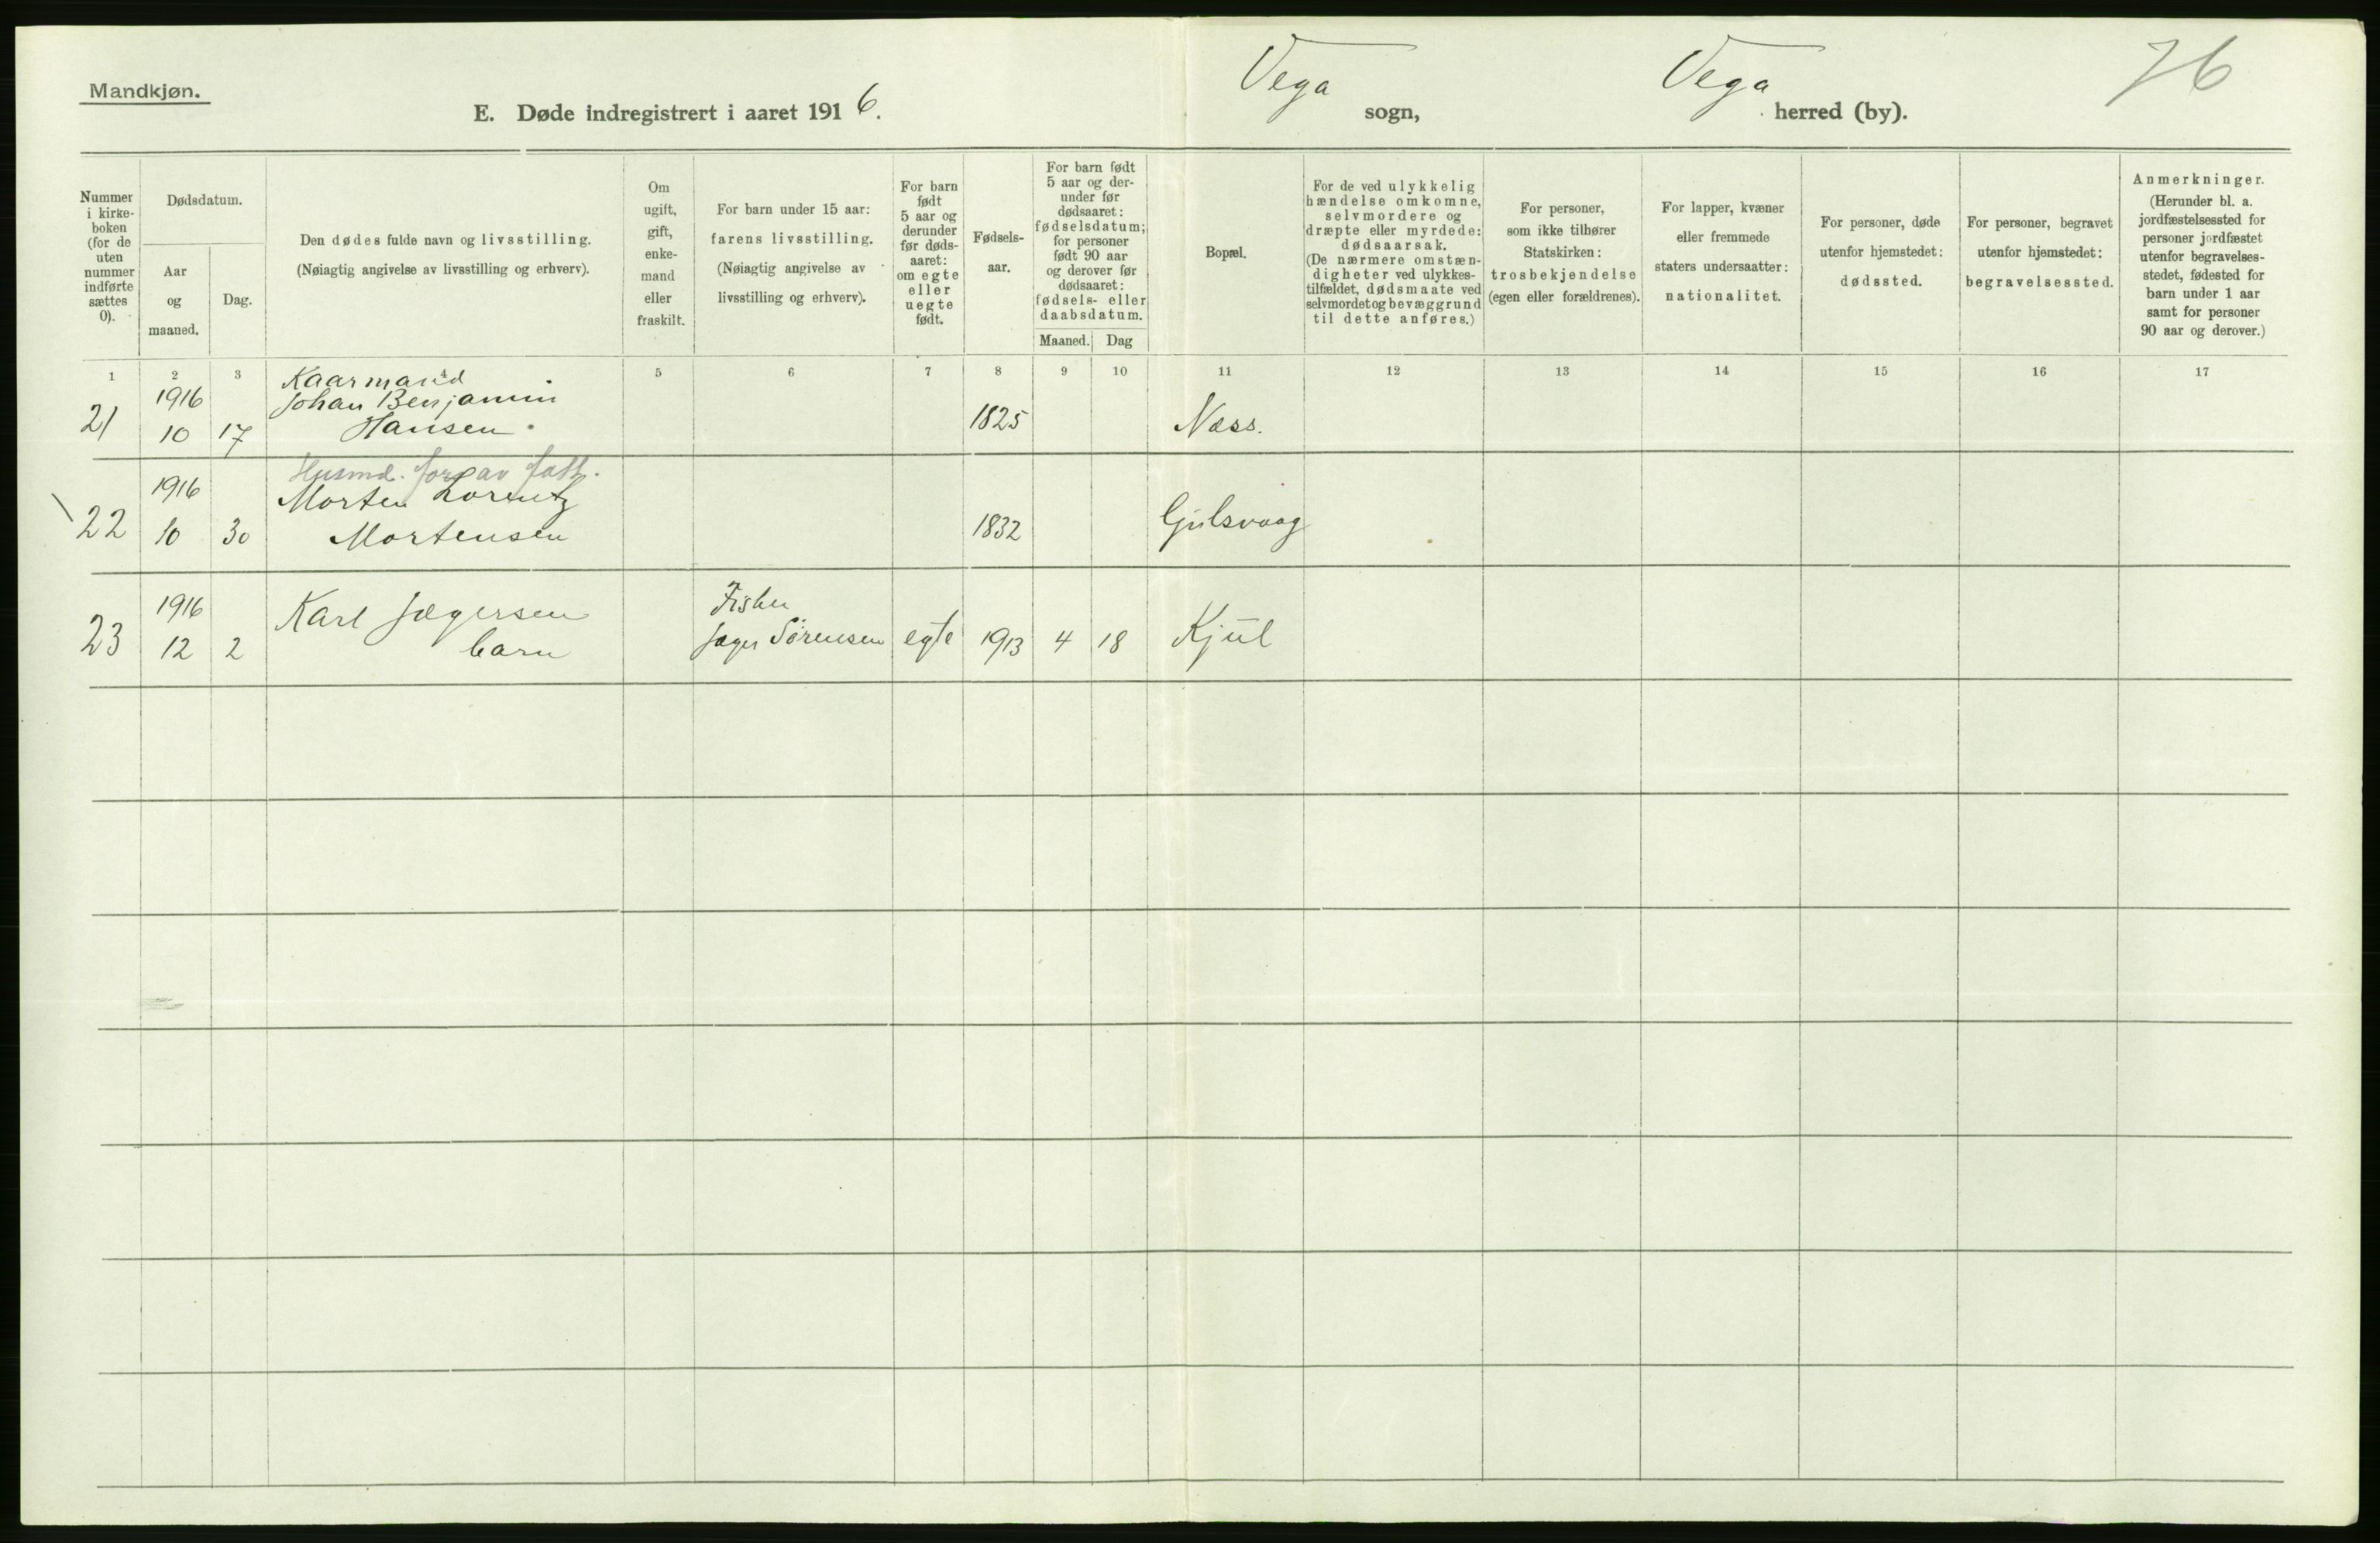 Mandkjøn.
E. Døde indregistrert i aaret 1916.
Vega sogn,
Vega herred (by).
76
Nummer i kirke-boken (for de uten nummer indførte sættes 0).
Dødsdatum.
Aar og maaned.
Dag.
Den dødes fulde navn og livsstilling.
(Nøiagtig angivelse av livsstilling og erhverv).
Om ugift, gift, enke-mand eller fraskilt.
For barn under 15 aar:
farens livsstilling.
(Nøiagtig angivelse av
livsstilling og erhverv).
For barn født 5 aar og derunder før døds-aaret: om egte eller uegte født.
Fødsels-aar.
For barn født 5 aar og der-under før dødsaaret: fødselsdatum; for personer født 90 aar og derover før dødsaaret: fødsels- eller daabsdatum.
Maaned. Dag
Bopæl.
For de ved ulykkelig
hændelse omkomne,
selvmordere og
dræpte eller myrdede:
dødsaarsak.
(De nærmere omstæn-
digheter ved ulykkes-
tilfældet, dødsmaate ved
selvmordet og bevæggrund
til dette anføres.)
For personer,
som ikke tilhører
Statskirken:
trosbekjendelse
(egen eller forældrenes).
For lapper, kvæner
eller fremmede
staters undersaatter:
nationalitet.
For personer, døde
utenfor hjemstedet:
dødssted.
For personer, begravet
utenfor hjemstedet:
begravelsessted.
Anmerkninger.
(Herunder bl. a.
jordfæstelsessted for
personer jordfæstet
utenfor begravelses-
stedet, fødested for
barn under 1 aar
samt for personer
90 aar og derover.)
1 2 3 4 5 6 7 8 9 10 11 12 13 14 15 16 17
Kaarmand
1916 Johan Benjamin
21 10 17 Hansen. 1825 Næss.
Husmd. fors av fatt.
1916 Morten Lorentz
22 10 30 Mortensen 1832 Gulsvaag
1916 Karl Jægersen Fisker
23 12 2 barn Jæger Sørensen egte 1913 4 18 Kjul